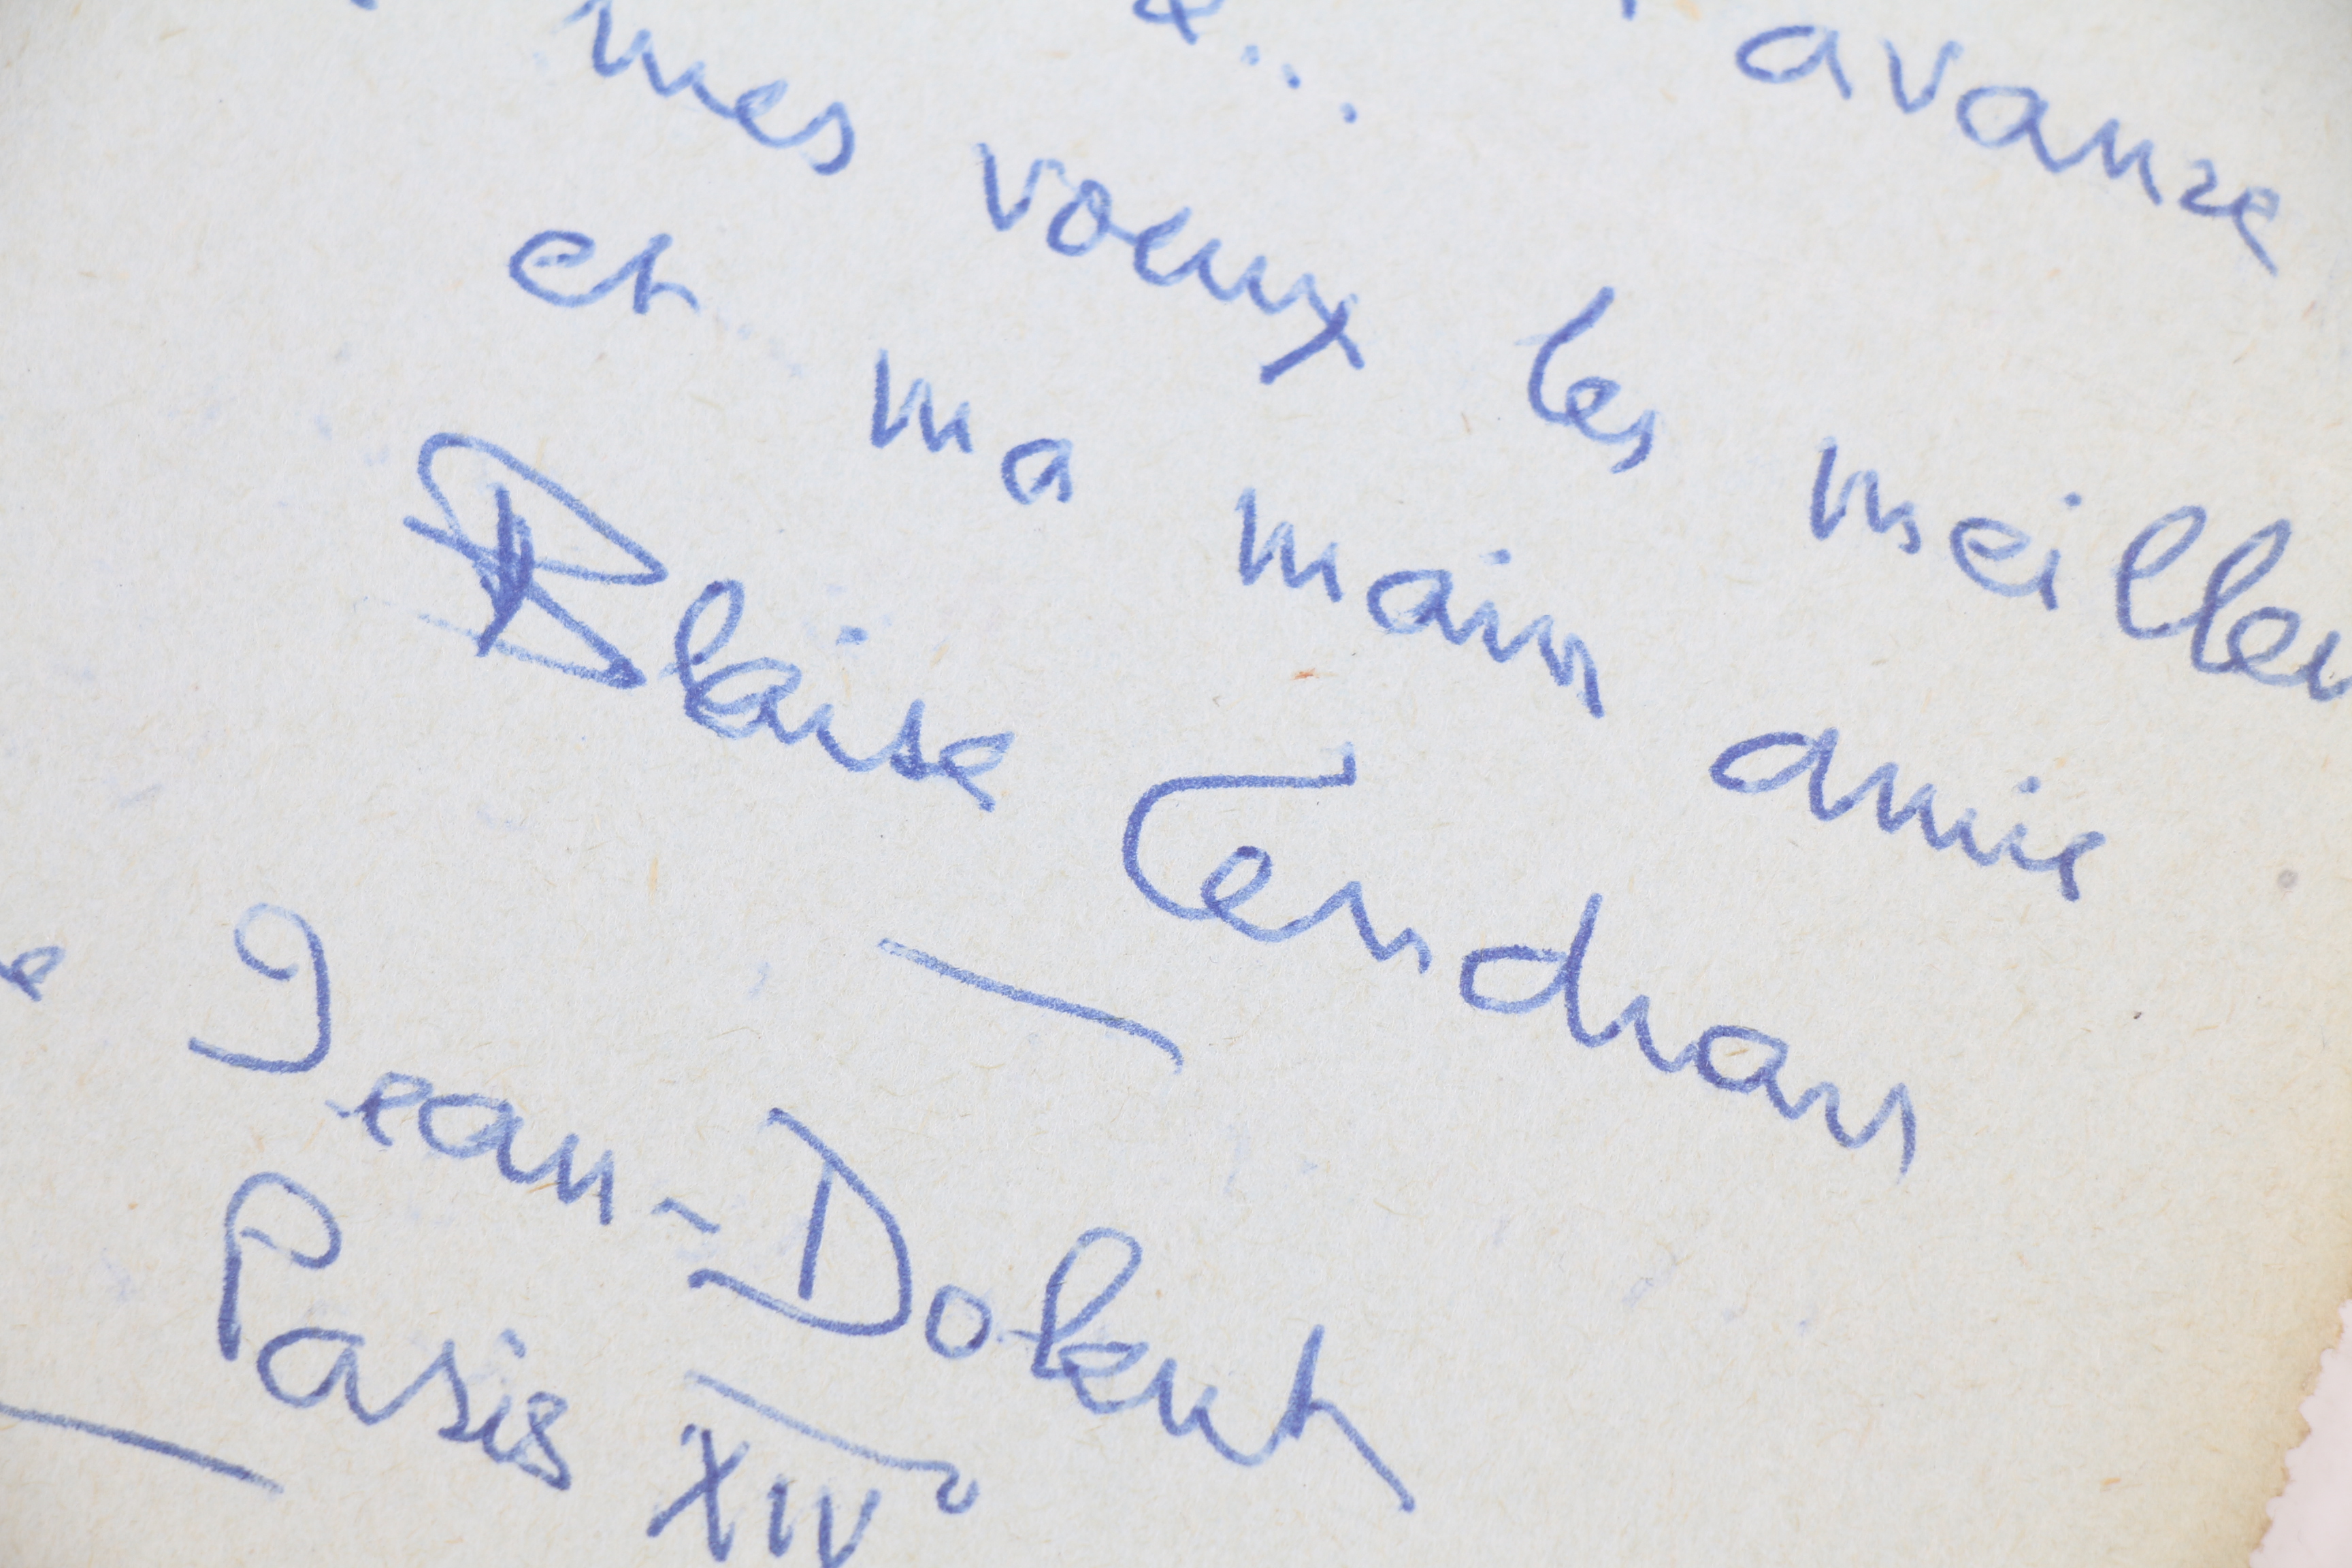 avance
mes voeux les meilleu
et ma main amie
Blaise Cendrars
e Jean-Dolent
Paris XIV°